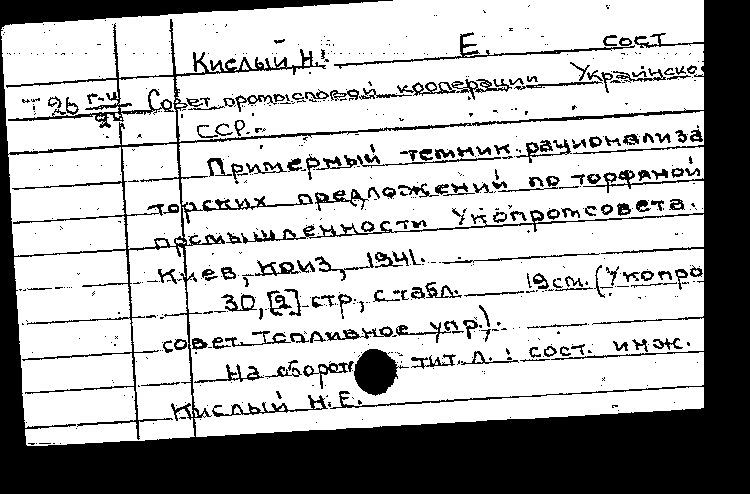 Кислый, Н. Е. сост
Т 26 г-и/24 Совет промысловой кооперации Украинско
ССР.-
Примерный темник рационализа
торских предложений по торфяной
промышленности Укопромсовета.
Киев, КОИЗ, 1941.
30, [2] стр., с табл. 19 см. (Укопро
совет. Топливное упр.).
На оборот тит. л.: сост. инж.
Кислый Н.Е.